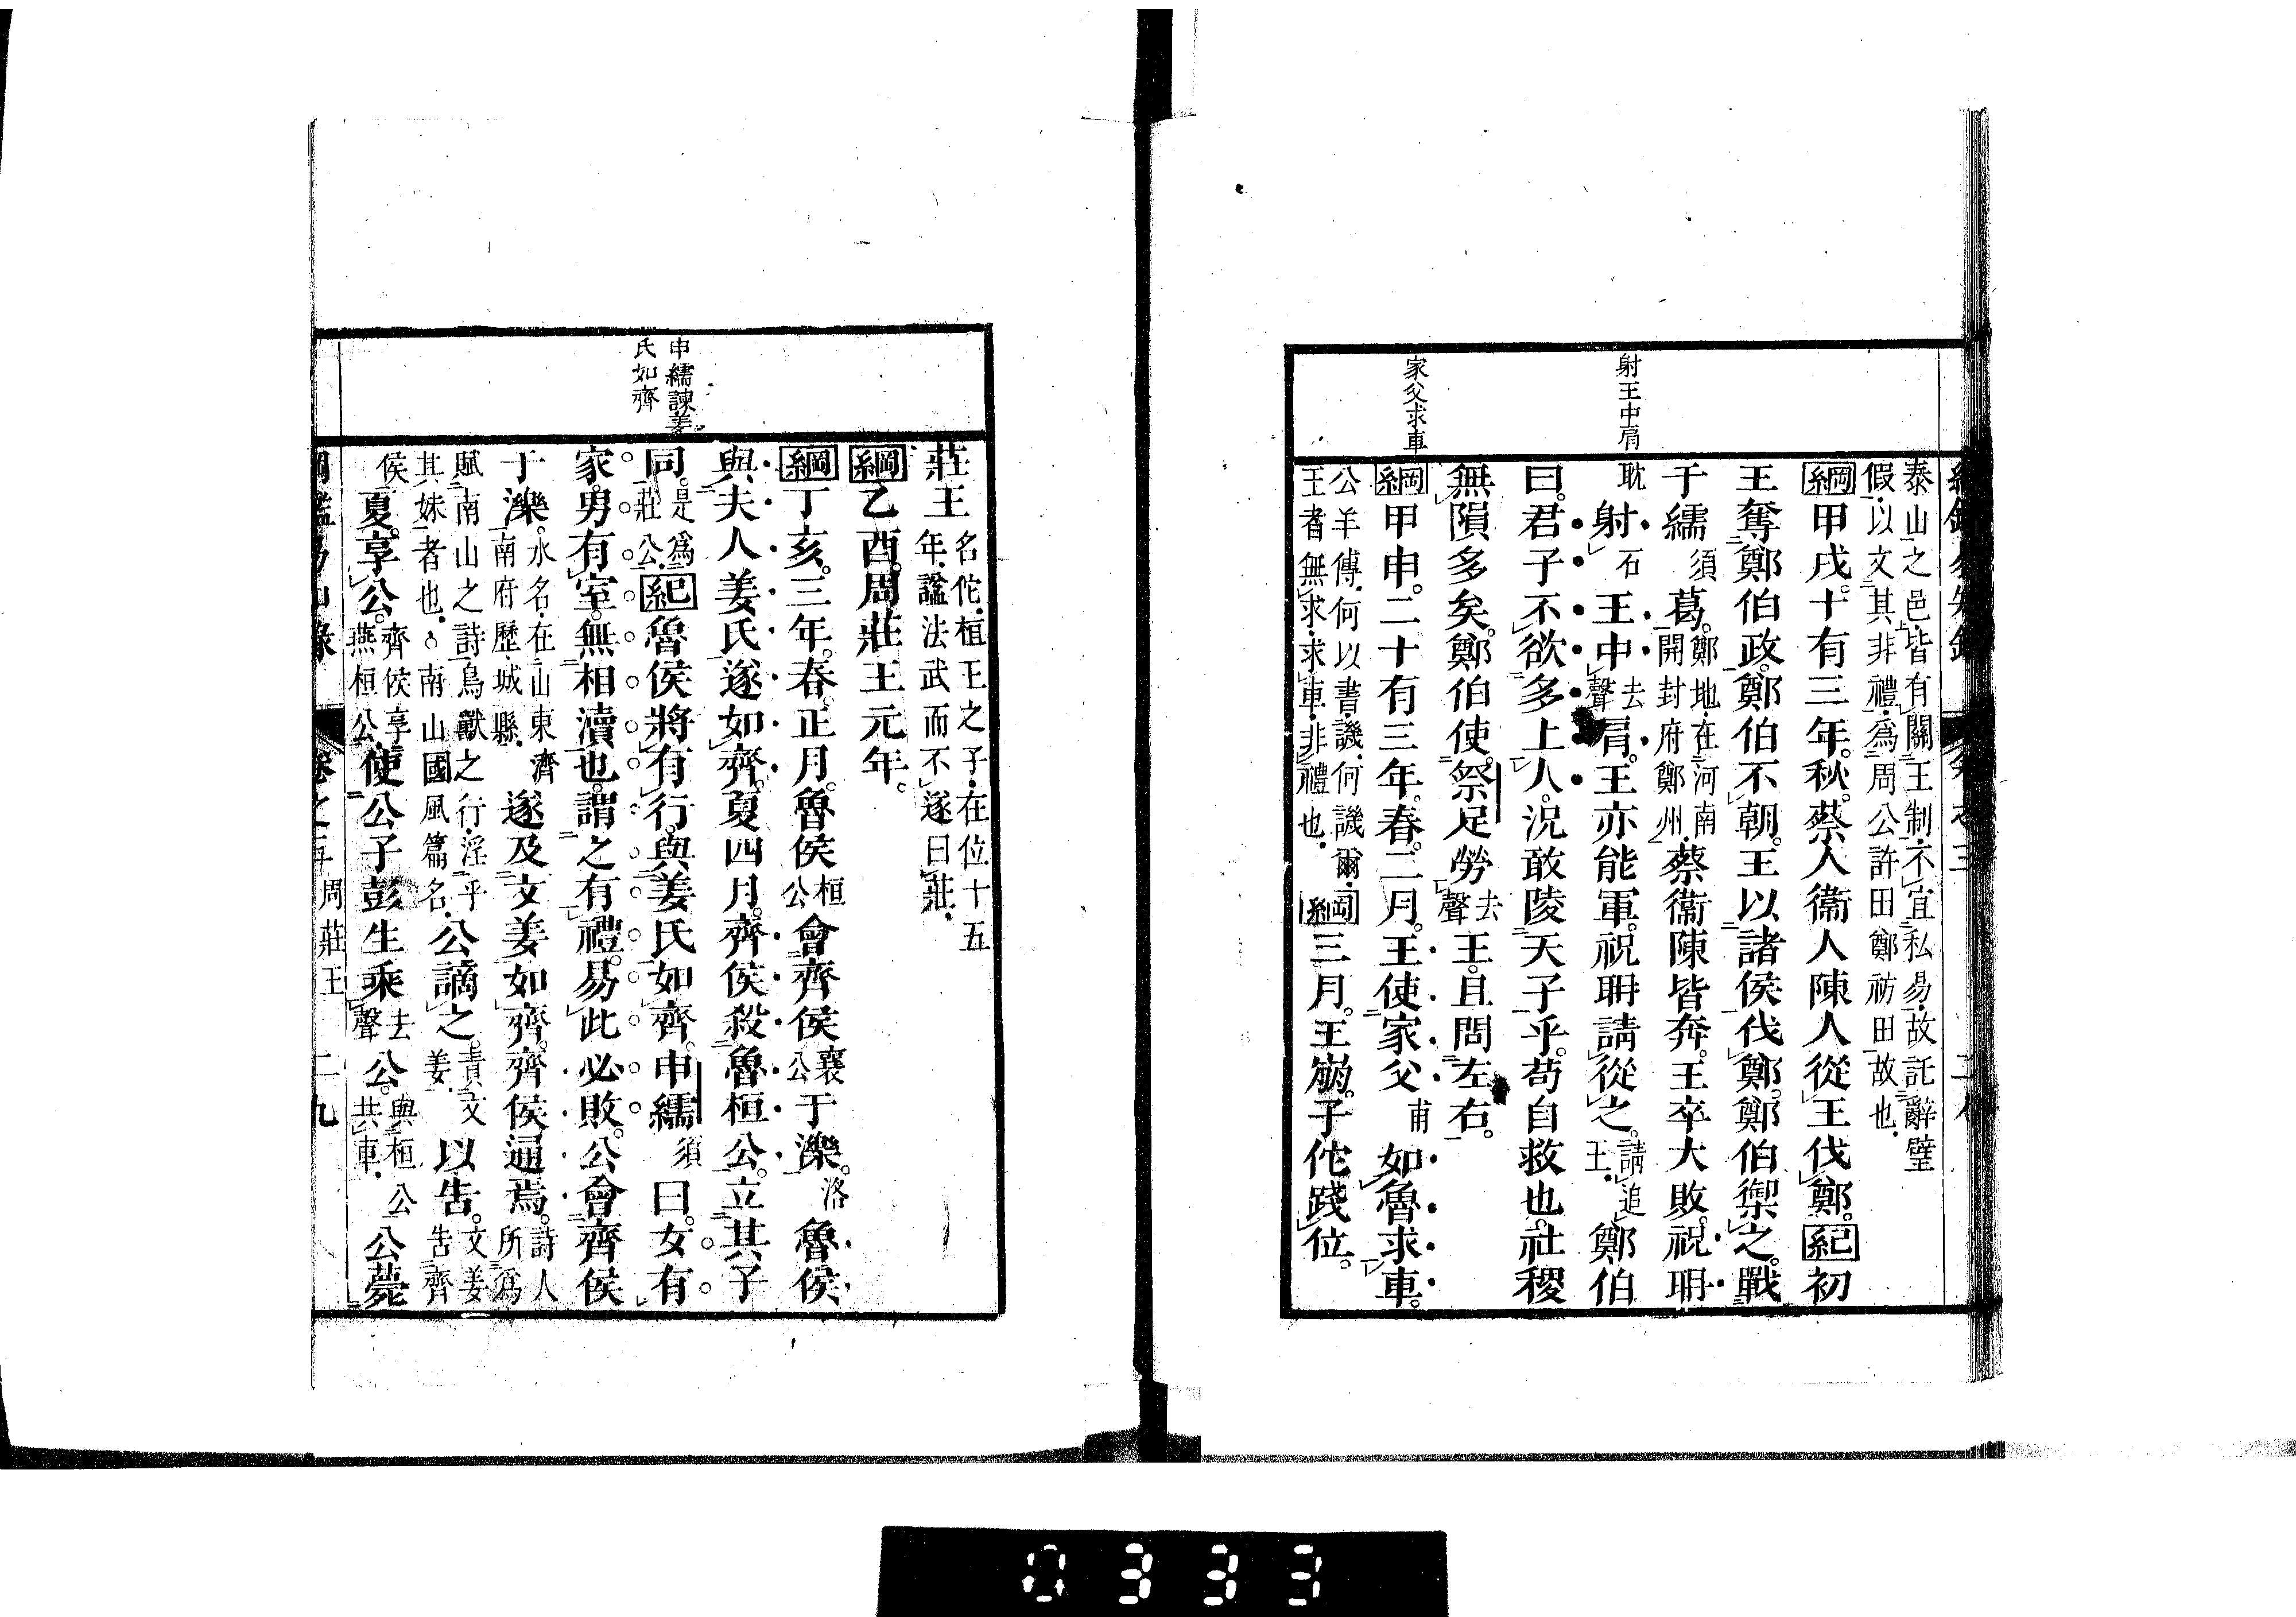 射王中肩
家父求車
泰山之邑皆有關王制不宜私易故託辭璧
假以文其非禮爲周公許田鄭祊田故也
綱甲戌。十有三年。秋。蔡人衞人陳人從王伐鄭。紀初
王奪鄭伯政。鄭伯不朝。王以諸侯伐鄭。鄭伯禦之。戰
于繻須葛。鄭地在河南開封府鄭州蔡衞陳皆奔。王卒大敗。祝聃
耽射石王中去聲肩。王亦能軍。祝聃請從之。請追王鄭伯
曰。君子不欲多上人。況敢陵天子乎。苟自救也。社稷
無隕多矣。鄭伯使祭足勞去聲王。且問左右。
綱甲申。二十有三年。春。二月。王使家父甫如魯求車。
公羊傳何以書譏何譏爾王者無求求車非禮也綱三月。王崩。子佗踐位。
申繻諫姜
氏如齊
莊王名佗桓王之子在位十五年諡法武而不遂曰莊
綱乙酉。周莊王元年。
綱丁亥。三年。春。正月。魯侯桓公會齊侯襄公于濼。洛魯侯
與夫人姜氏遂如齊。夏四月。齊侯殺魯桓公。立其子
同。是爲莊公紀魯侯將有行。與姜氏如齊。申繻須曰。女有
家。男有室。無相瀆也。謂之有禮。易此必敗。公會齊侯
于濼。水名在山東濟南府歷城縣遂及文姜如齊。齊侯通焉。詩人所爲
賦南山之詩鳥獸之行淫乎其妹者也○南山國風篇名公謫之。責文姜以告。文姜告齊
侯夏。享公。齊侯享燕桓公使公子彭生乘去聲公。與桓公共車公薨
卷之 周莊王 二九